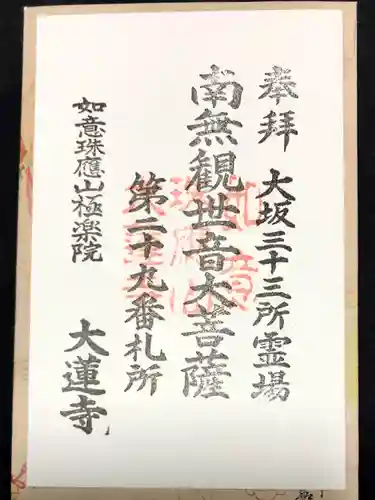 奉拝 大坂三十三所霊場
南無観世音大菩薩
第二十九番札所
如意珠應山極楽院 大蓮寺